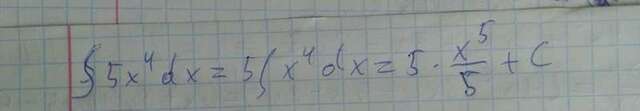 ∫ 5x⁴dx = 5∫ x⁴dx = 5 · x⁵/5 + C